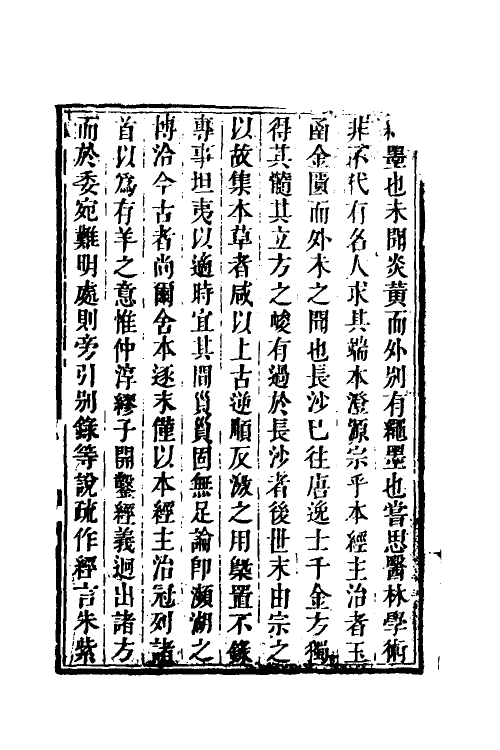 墨也未聞炎黃而外别有繩墨也嘗思醫林學術
非不代有名人求其端本澄源宗乎本經主治者玉
函金匱而外未之聞也長沙巳往唐逸士千金方獨
得其髓其立方之峻有過於長沙者後世未由宗之
以故集本草者咸以上古逆順反激之用槩置不錄
專事坦夷以適時宜其間貿貿固無足論即瀕湖之
博洽今古者尚爾舍本逐末僅以本經主治冠列諸
首以爲有羊之意惟仲淳繆子開鑿經義迥出諸方
而於委宛難明處則旁引别錄等說疏作經言朱紫